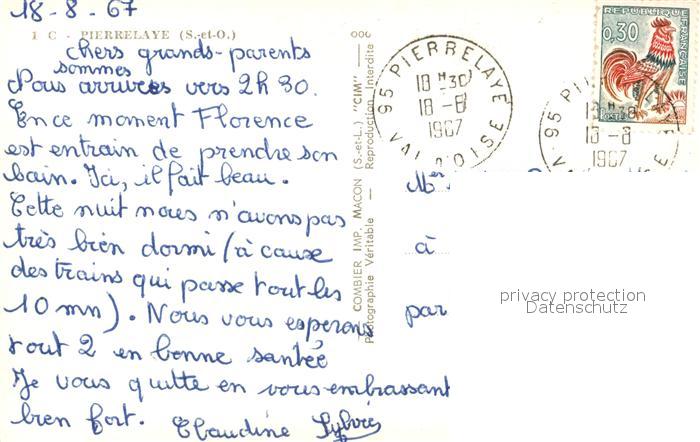 18-8-67
1 C - PIERRELAYE (S.-et-O.)
chers grands-parents
sommes
Nous arrivées vers 2h 30.
En ce moment Florence
est entrain de prendre son
bain. Ici, il fait beau.
Cette nuit nous n'avons pas
très bien dormi (à cause
des trains qui passe tout les
10 mn). Nous vous esperons
tout 2 en bonne santée
Je vous quitte en vous embrassant
bien fort. Claudine Sylvie
COMBIER IMP. MACON (S.-et-L.) "CIM"
Photographie Véritable — Reproduction Interdite
95 PIERRELAYE
18 H 30
18-8
1967
VAL D'OISE
95
18-8
1967
REPUBLIQUE FRANÇAISE
0,30
POSTES
à
par
privacy protection
Datenschutz